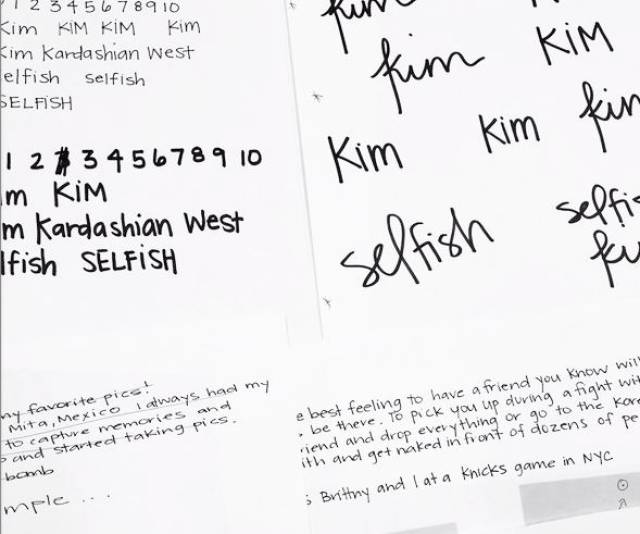 1 2 3 4 5 6 7 8 9 10
Kim KIM KIM Kim
Kim Kardashian West
elfish selfish
SELFISH
1 2 3 4 5 6 7 8 9 10
m KIM
m Kardashian West
lfish SELFISH
kim
kim KIM
Kim Kim kim
selfish selfis
ki
ny favorite pics!
Mita, Mexico I always had my
to capture memories and
and started taking pics.
bomb
mple ...
e best feeling to have a friend you know will
be there. To pick you up during a fight wit
riend and drop everything or go to the Kar
ith and get naked in front of dozens of pe
s Brittny and I at a Knicks game in NYC